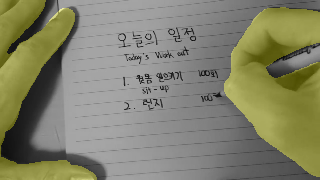 오늘의 일정
Today's Work out
1. 윗몸 일으키기 100회
sit-up
2. 런지 100